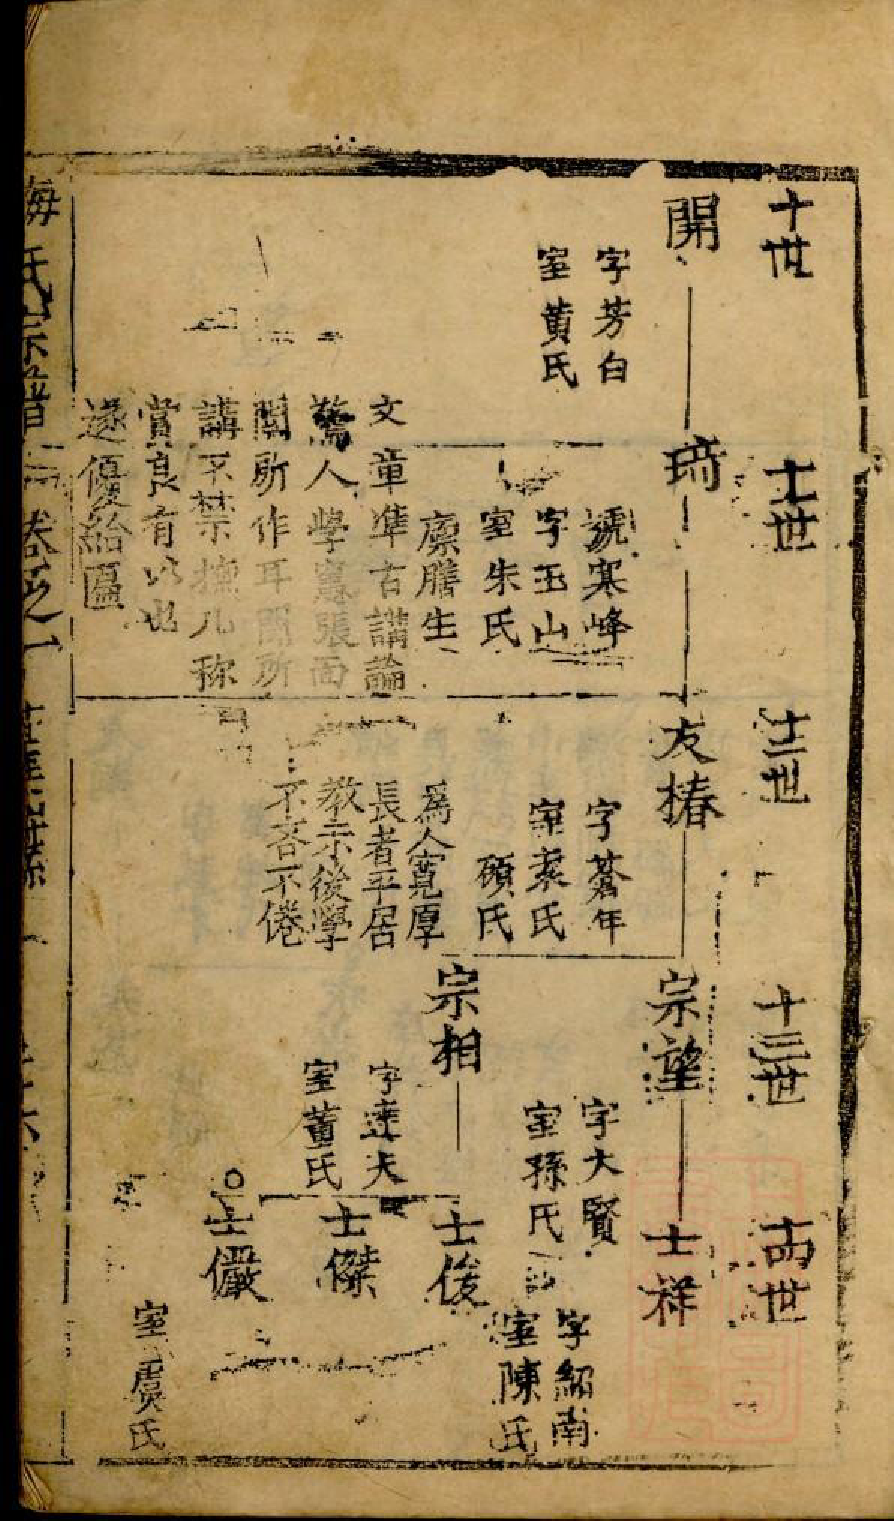 十世
開
字芳白
室黄氏
十一世
琦
號寒峰
字玉山
室朱氏
廪膳生
文章凖古講論
驚人學憲張面
閲所作耳聞所
講不禁撫几称
賞良有以也
遂優給匾
十二世
友椿
字蒼年
室袁氏
碩氏
為人寛厚
長者平居
教示後學
不吝不倦
十三世
宗望
字大賢
室孫氏
宗相
字達夫
室董氏
十四世
士祥
字紹南
室陳氏
士俊
士傑
士儼
室虞氏
梅氏宗譜
卷之一